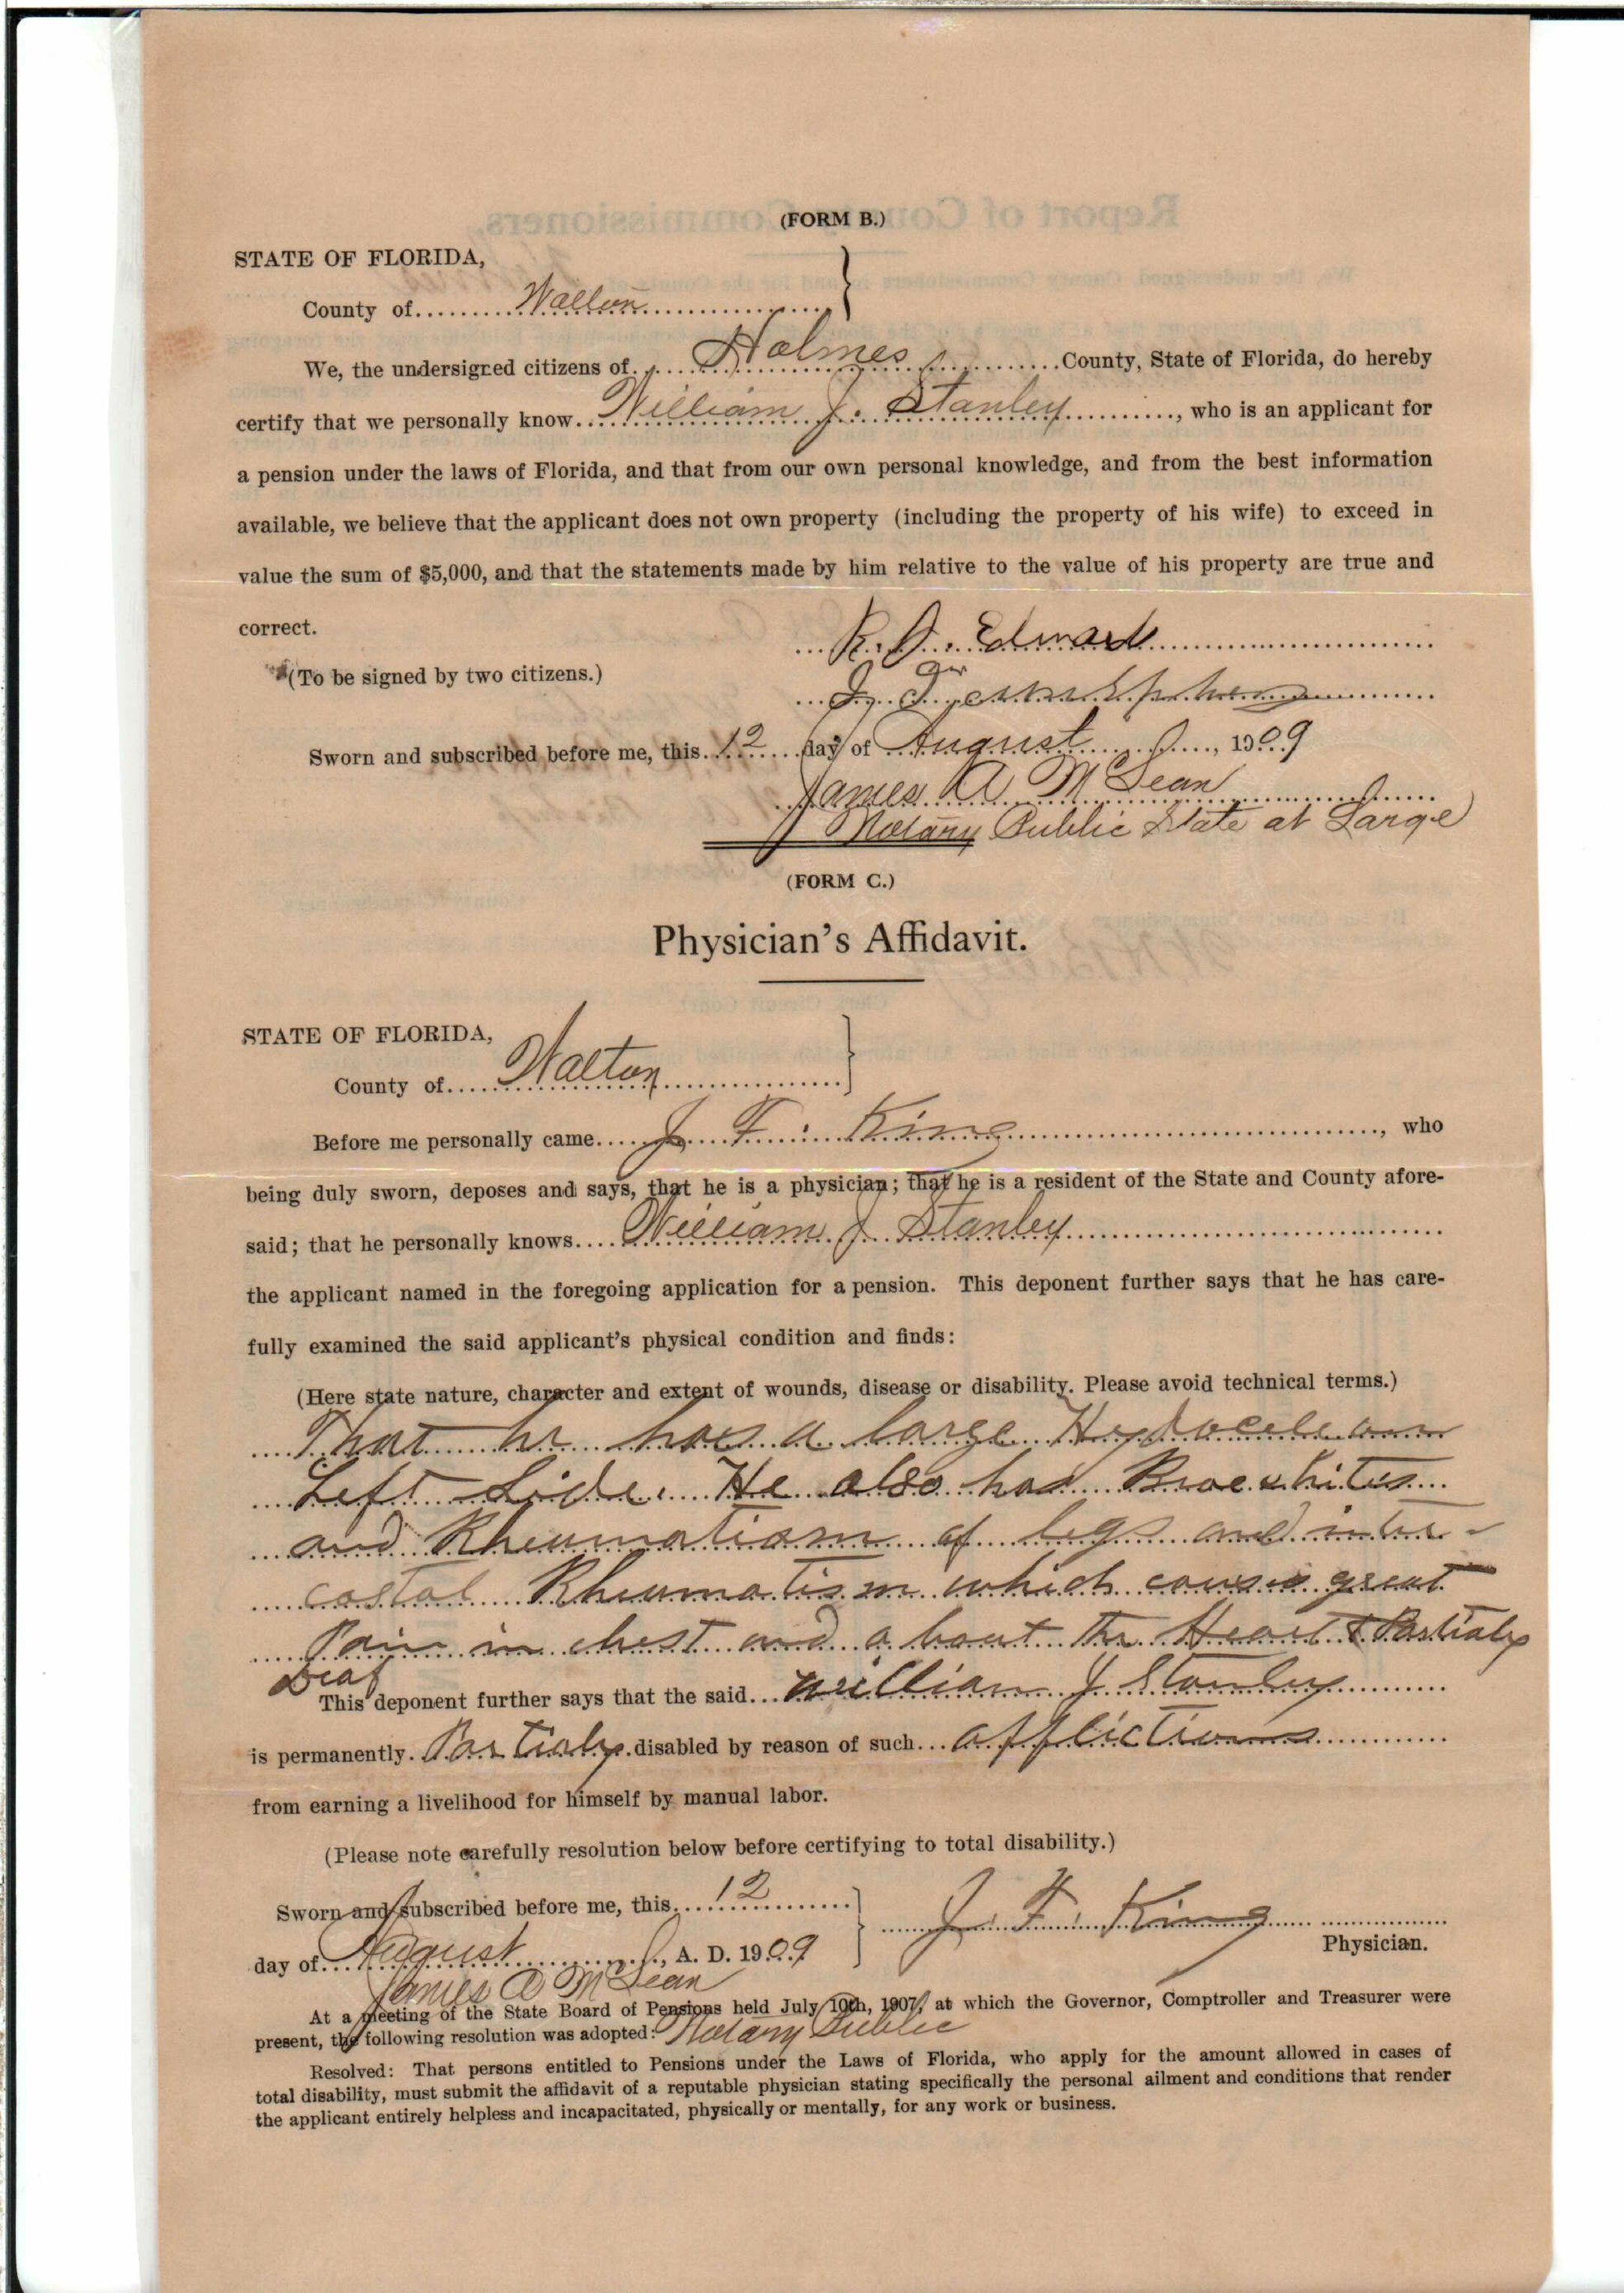 (FORM B.)
STATE OF FLORIDA,
County of Walton
We, the undersigned citizens of Holmes County, State of Florida, do hereby
certify that we personally know William J. Stanley, who is an applicant for
a pension under the laws of Florida, and that from our own personal knowledge, and from the best information
available, we believe that the applicant does not own property (including the property of his wife) to exceed in
value the sum of $5,000, and that the statements made by him relative to the value of his property are true and
correct.
R. J. Edwards
(To be signed by two citizens.)
Sworn and subscribed before me, this 12 day of August, 1909
James A McLean
Notary Public State at Large
(FORM C.)
Physician's Affidavit.
STATE OF FLORIDA,
County of Walton
Before me personally came J. F. King, who
being duly sworn, deposes and says, that he is a physician; that he is a resident of the State and County afore-
said; that he personally knows William J Stanley
the applicant named in the foregoing application for a pension. This deponent further says that he has care-
fully examined the said applicant's physical condition and finds:
(Here state nature, character and extent of wounds, disease or disability. Please avoid technical terms.)
That he has a large Hydocele on
Left Side. He also has Bronchites
and Rheumatism of legs and inter-
costal Rheumatism which causes great
Pain in chest and about the Heart & Partialy
Deaf
This deponent further says that the said William J Stanley
is permanently Partialy disabled by reason of such afflictions
from earning a livelihood for himself by manual labor.
(Please note carefully resolution below before certifying to total disability.)
Sworn and subscribed before me, this 12
J. F. King
Physician.
day of August, A. D. 1909
James A McLean
At a meeting of the State Board of Pensions held July 10th, 1907, at which the Governor, Comptroller and Treasurer were
present, the following resolution was adopted: Notary Public
Resolved: That persons entitled to Pensions under the Laws of Florida, who apply for the amount allowed in cases of
total disability, must submit the affidavit of a reputable physician stating specifically the personal ailment and conditions that render
the applicant entirely helpless and incapacitated, physically or mentally, for any work or business.